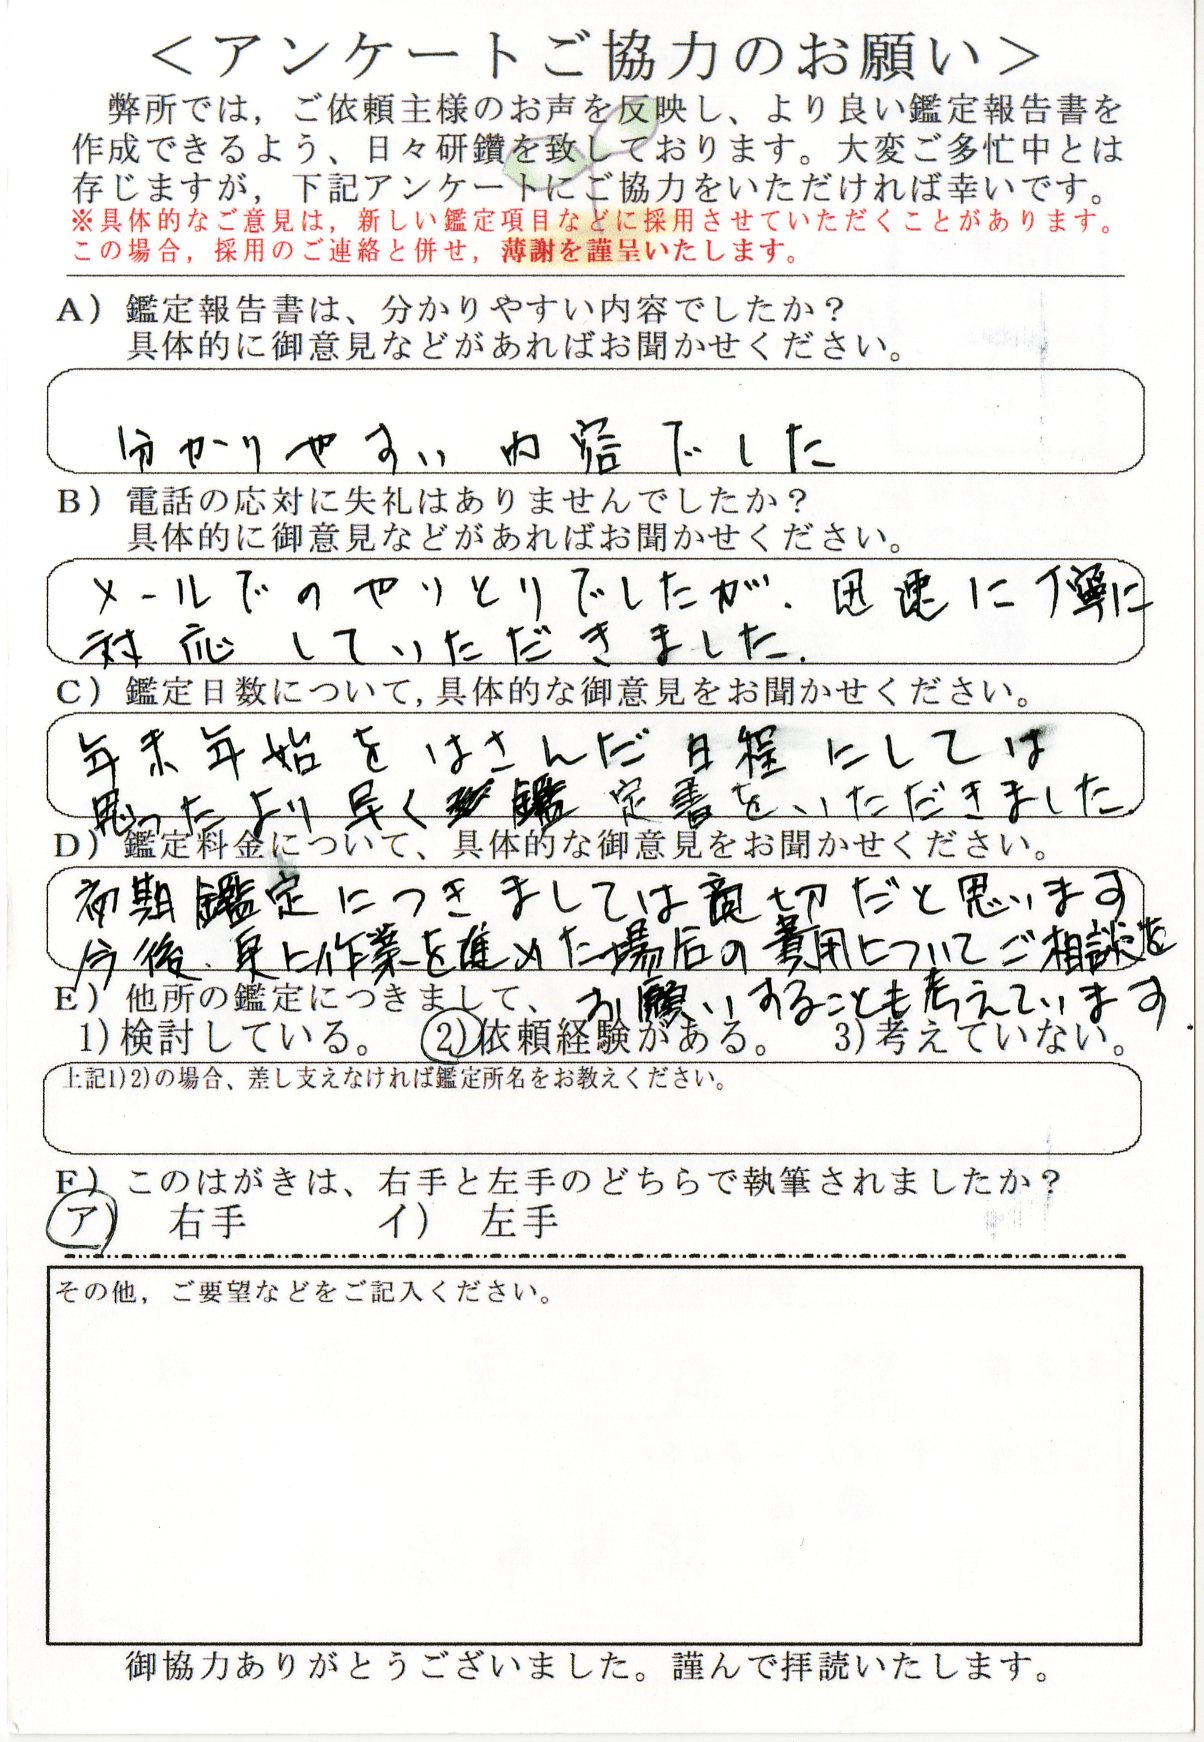 ＜アンケートご協力のお願い＞
弊所では，ご依頼主様のお声を反映し、より良い鑑定報告書を
作成できるよう、日々研鑽を致しております。大変ご多忙中とは
存じますが，下記アンケートにご協力をいただければ幸いです。
※具体的なご意見は，新しい鑑定項目などに採用させていただくことがあります。
この場合，採用のご連絡と併せ，薄謝を謹呈いたします。
A）鑑定報告書は、分かりやすい内容でしたか？
具体的に御意見などがあればお聞かせください。
分かりやすい内容でした
B）電話の応対に失礼はありませんでしたか？
具体的に御意見などがあればお聞かせください。
メールでのやりとりでしたが、迅速に丁寧に
対応していただきました.
C）鑑定日数について，具体的な御意見をお聞かせください。
年末年始をはさんだ日程にしては
思ったより早く鑑定書をいただきました.
D）鑑定料金について、具体的な御意見をお聞かせください。
初期鑑定につきましては適切だと思います
今後、更に作業を進めた場合の費用についてご相談を
お願いすることも考えています.
E）他所の鑑定につきまして、
1)検討している。 2)依頼経験がある。 3)考えていない。
上記1)2)の場合、差し支えなければ鑑定所名をお教えください。
F）このはがきは、右手と左手のどちらで執筆されましたか？
ア） 右手 イ） 左手
その他，ご要望などをご記入ください。
御協力ありがとうございました。謹んで拝読いたします。